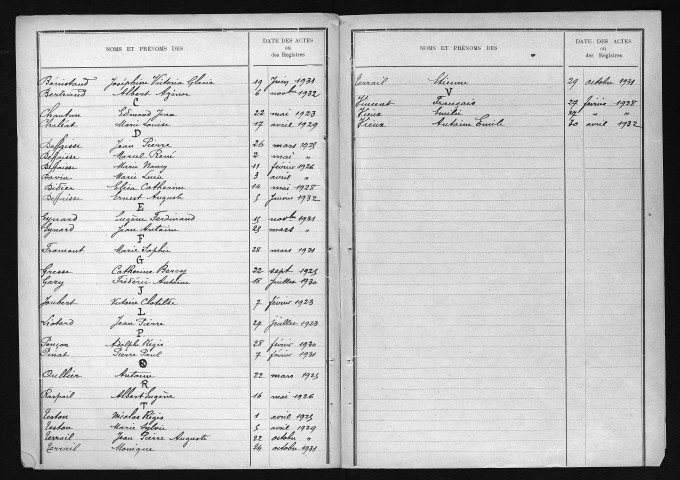 NOMS ET PRÉNOMS DES DATE DES ACTES
ou
des Registres
Joséphine Victoria 19 Juin 1931
Bertrand Albert 6 novbre 1932
C
Edmond Jean 22 mai 1923
Chaléat Marie Louise 17 avril 1929
D
Jean Pierre 26 mars 1925
Marcel René 2 mai "
Marie Nancy 11 février 1926
Marie Lucie 3 avril "
Elisa Catherine 14 mai 1928
Ernest Auguste 5 Janvier 1932
E
Eynard Eugène Ferdinand 15 novbre 1931
Eynard Jean Antoine 25 mars "
F
Framont Marie Sophie 28 mars 1931
G
Gresse Catherine 22 sept 1925
Gary Frédéric Antoine 16 juillet 1930
J
Joubert Victoire Clotilde 7 février 1923
L
Liotard Jean Pierre 27 juillet 1923
P
Adolphe Régis 28 février 1930
Pinat Pierre Paul 7 février 1931
Oullier Antoine 22 mars 1925
R
Raspail Albert Eugène 16 mai 1926
T
Teston Nicolas Régis 1 avril 1925
Teston Marie Sylvie 5 avril 1929
Terrail Jean Pierre Auguste 22 octobre "
Terrail Monique 24 octobre 1931
NOMS ET PRÉNOMS DES DATE DES ACTES
ou
des Registres
Terrail Etienne 29 octobre 1931
V
Vincent Français 27 février 1928
Vieux Emilie " "
Vieux Antoine Emile 30 avril 1932